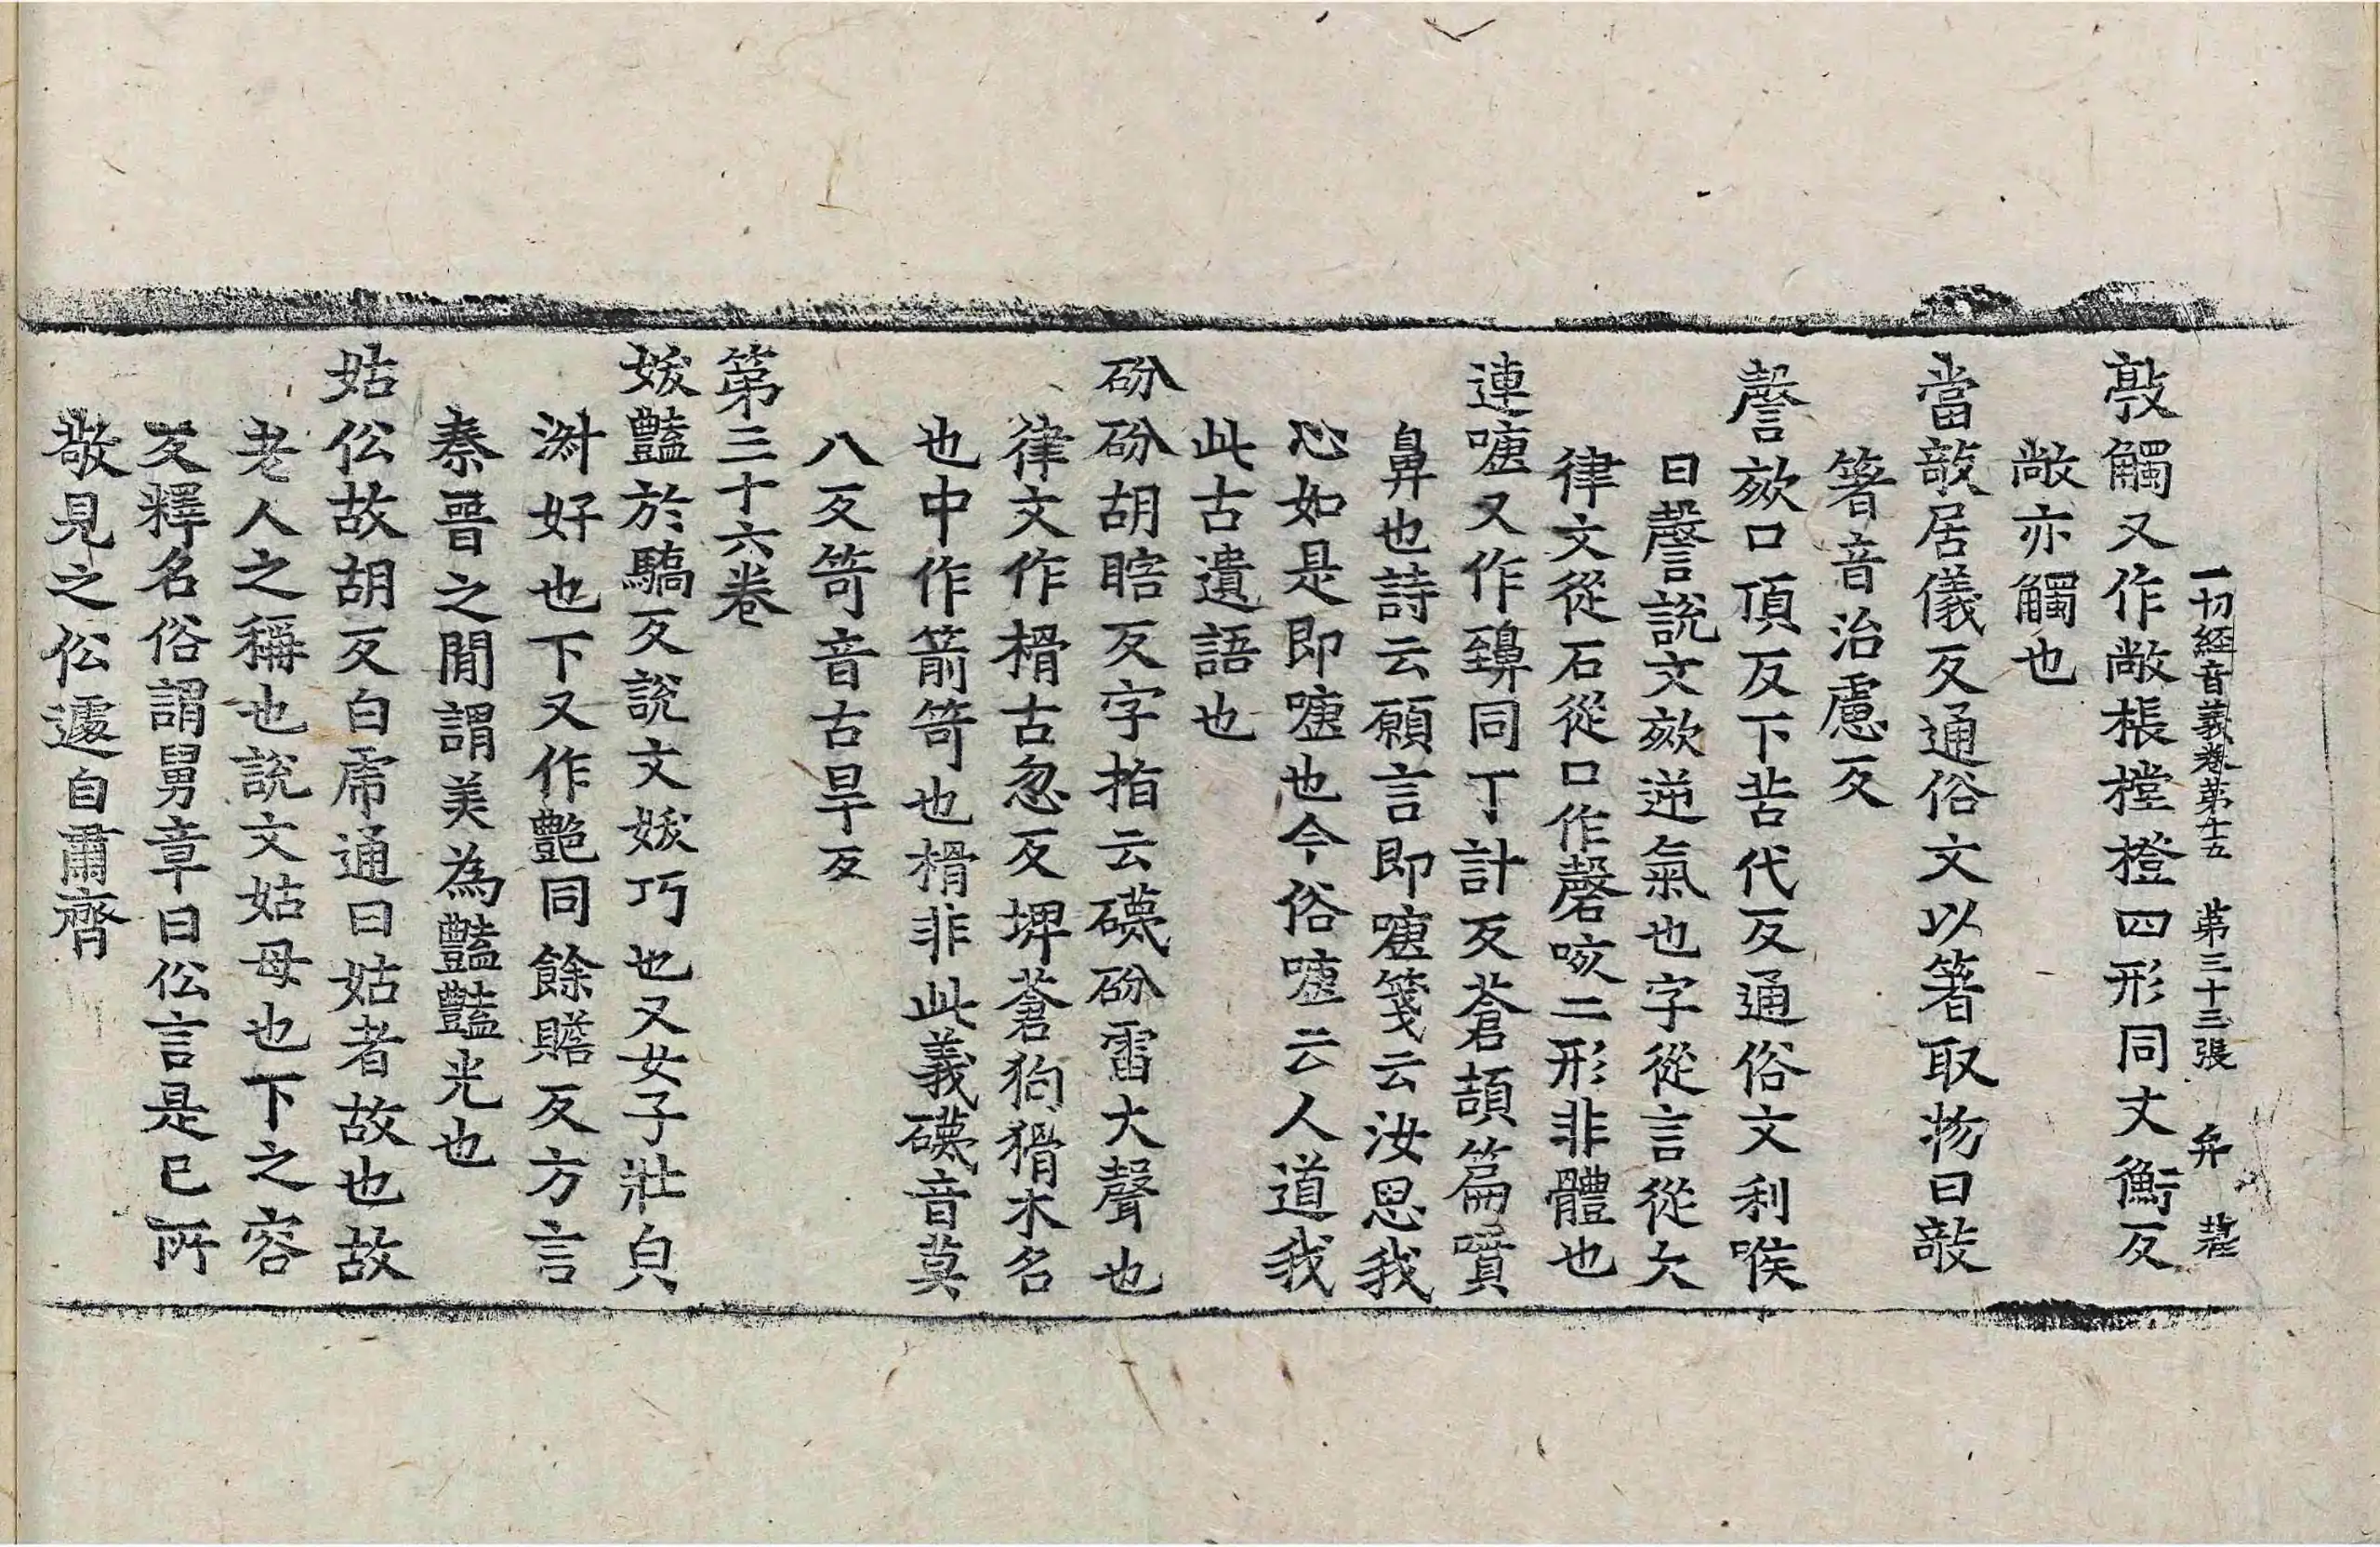 一切経音義卷第十五　第三十三張　弁
敦觸又作敞棖樘橙四形同丈衡反
敞亦觸也
當敧居儀反通俗文以箸取物曰敧
箸音治慮反
謦欬口頂反下苦代反通俗文利喉
曰謦說文欬逆氣也字從言從欠
律文從石從口作磬咳二形非體也
連嚏又作䶍同丁計反蒼頡篇嚏噴
鼻也詩云願言即嚏箋云汝思我
心如是即嚏也今俗嚏云人道我
此古遺語也
砏砏胡瞎反字指云礣砏雷大聲也
律文作榾古忽反埤蒼狗猾木名
也中作箭笴也榾非此義礣音莫
八反笴音古旱反
第三十六卷
妭豔於驕反說文妭巧也又女子壯皃
澍好也下又作艷同餘贍反方言
秦晉之間謂美為豔豔光也
姑伀故胡反白虎通曰姑者故也故
老人之稱也說文姑母也下之容
反釋名俗謂舅章曰伀言是已所
敬見之伀遽自肅齊